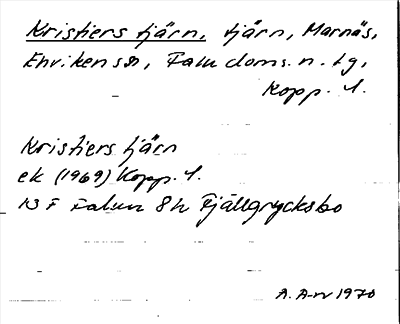 Kristiers tjärn, tjärn, Marnäs,
Enviken sn, Falu doms. n. tg,
Kopp. l.
Kristiers tjärn
ek (1969) Kopp. l.
13 F Falun 8h Fjällgrycksbo
A. A-n 1970